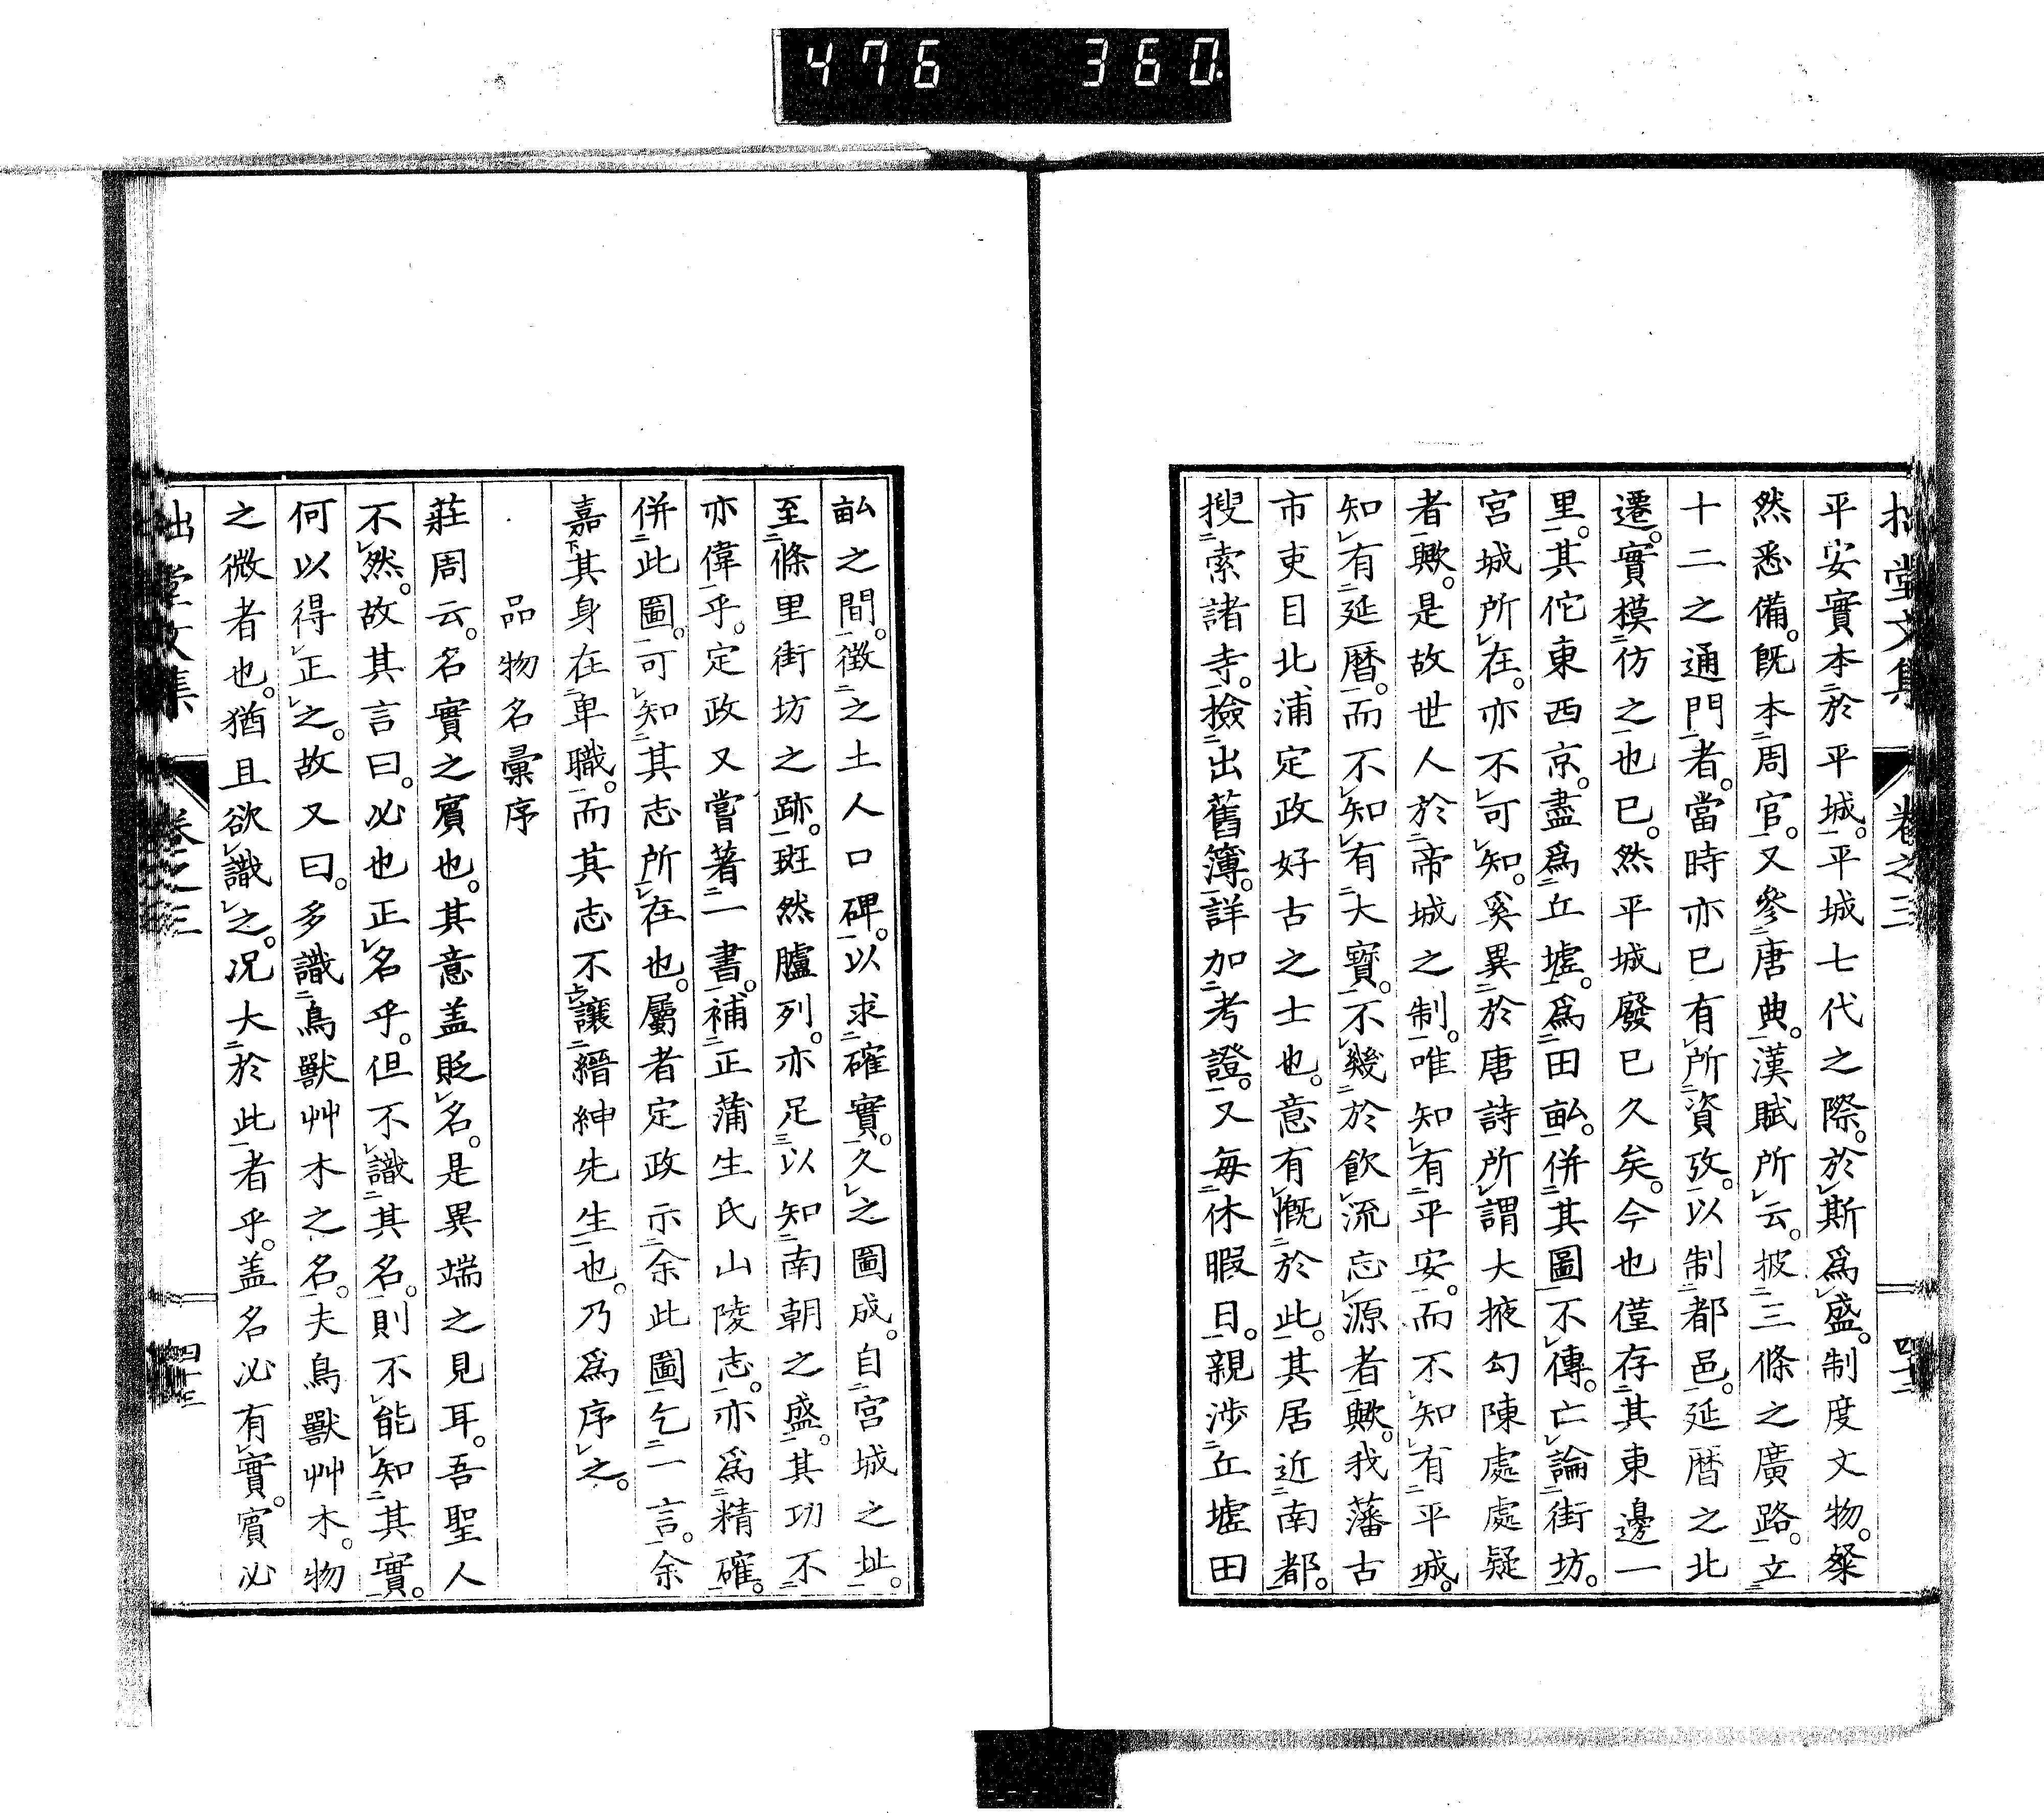 476 360
拙堂文集 卷之三 四十二
平安實本於平城。平城七代之際。於斯爲盛。制度文物。粲
然悉備。旣本周官。又參唐典。漢賦所云。披三條之廣路。立
十二之通門者。當時亦已有所資攷。以制都邑。延暦之北
遷。實模仿之也已。然平城廢已久矣。今也僅存其東邊一
里。其佗東西京。盡爲丘墟。爲田畝。併其圖不傳。亡論街坊。
宮城所在。亦不可知。奚異於唐詩所謂大掖勾陳處處疑
者歟。是故世人於帝城之制。唯知有平安。而不知有平城。
知有延暦。而不知有大寶。不幾於飮流忘源者歟。我藩古
市吏目北浦定政好古之士也。意有慨於此。其居近南都。
搜索諸寺。撿出舊簿。詳加考證。又每休暇日。親渉丘墟田
畝之間。徵之土人口碑。以求確實。久之圖成。自宮城之址。
至條里街坊之跡。斑然臚列。亦足以知南朝之盛。其功不
亦偉乎。定政又嘗著一書。補正蒲生氏山陵志。亦爲精確。
併此圖。可知其志所在也。屬者定政示余此圖乞一言。余
嘉其身在卑職。而其志不讓縉紳先生也。乃爲序之。
品物名彙序
莊周云。名實之賓也。其意盖貶名。是異端之見耳。吾聖人
不然。故其言曰。必也正名乎。但不識其名。則不能知其實。
何以得正之。故又曰。多識鳥獸艸木之名。夫鳥獸艸木。物
之微者也。猶且欲識之。况大於此者乎。盖名必有實。賓必
拙堂文集 卷之三 四十三